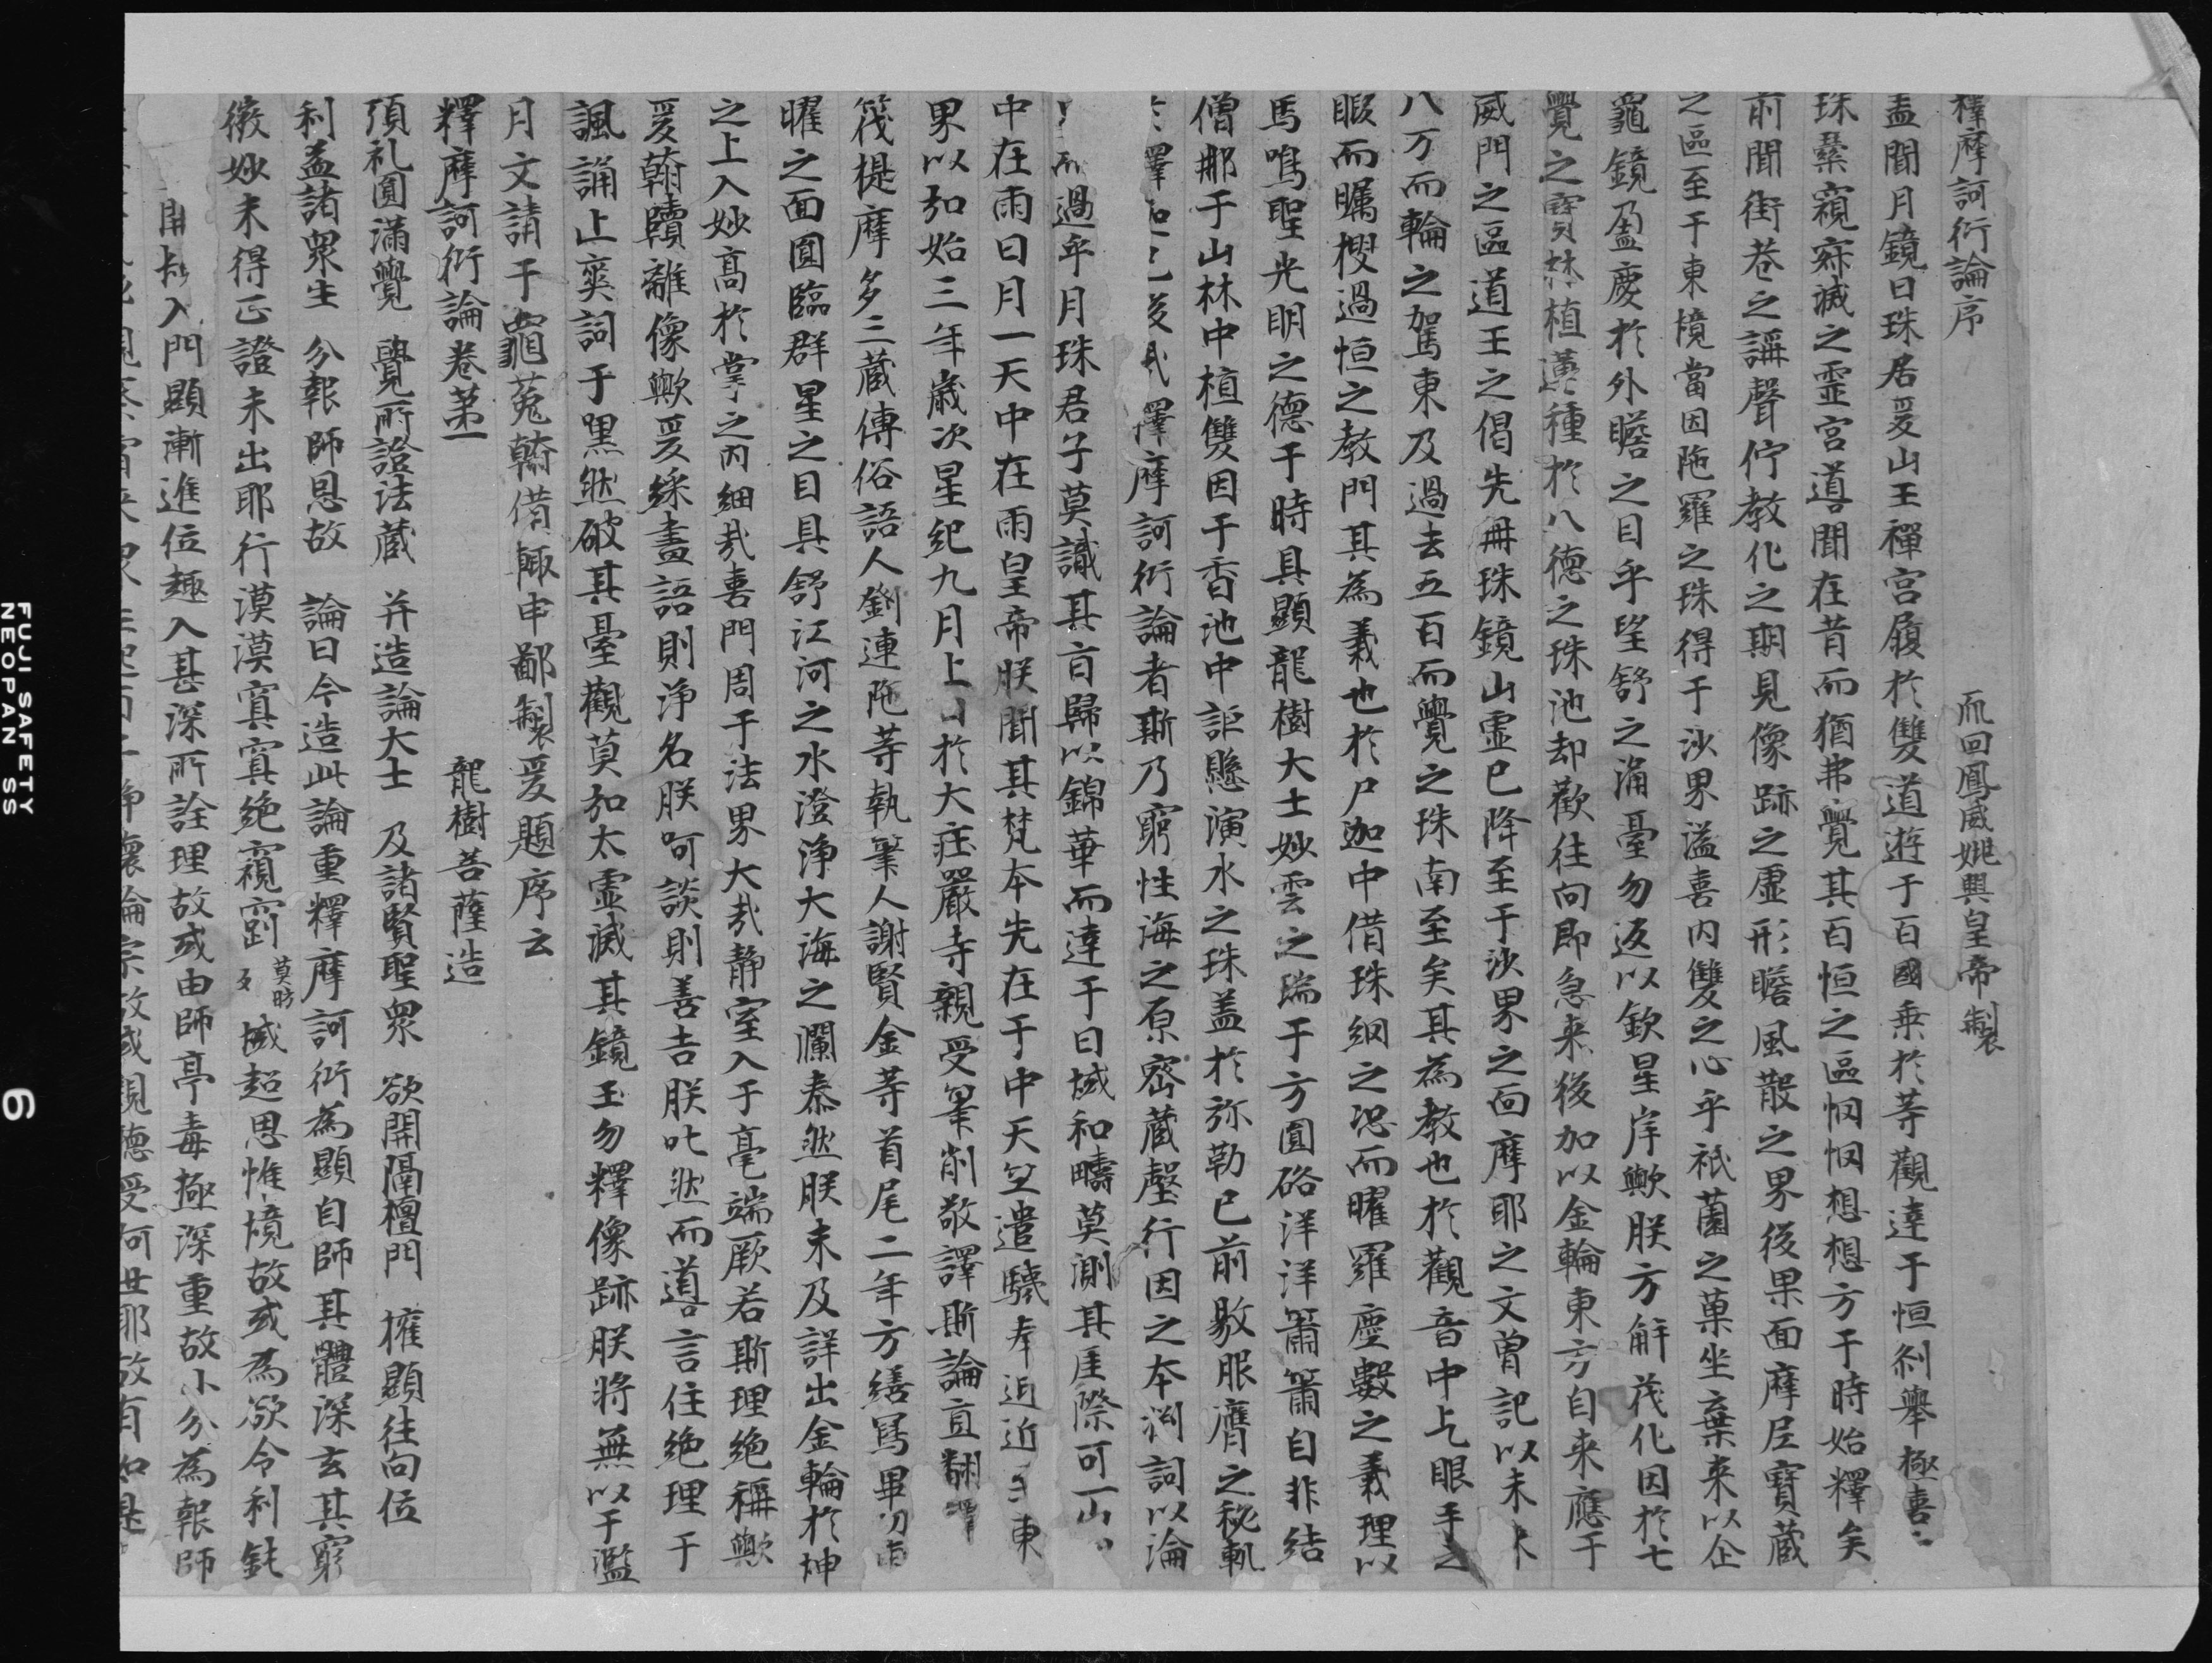 釋摩訶衍論序
瓜回鳳威姚興皇帝製
盖聞月鏡日珠居爰山王禪宮履於雙道遊于百國乗於等觀達于恒刹舉極喜
珠纍窺寂滅之霊宮道聞在昔而猶弗覺其百恒之區惘惘想想方于時始釋矣
前聞街巷之講聲佇教化之期見像跡之虚形瞻風散之界後果面摩尼寶蔵
之區至于東境當因陁羅之珠得于沙界溢喜内雙之心乎祇薗之菓坐棄来以企
龜鏡盈慶於外瞻之目乎望舒之涌臺勿返以欽星岸歟朕方解茂化因於七
覺之寳林植蓮種於八德之珠池却歡往向即急来後加以金輪東方自来應于
威門之區道王之倡先冊珠鏡山霊已降至于沙界之面摩耶之文曽記以未
八万而輪之駕東及過去五百而覺之珠南至矣其為教也於觀音中上眼手之
眼而矚櫻過恒之教門其為義也於尸迦中借珠網之㳒而曜羅塵數之義理以
馬鳴聖光明之德于時具顯龍樹大士妙雲之瑞于方圓硌洋洋簫簫自非結
僧那于山林中植雙因于香池中詎懸演水之珠盖於弥勒已前敷服膺之秘軌
釋摩訶衍論者斯乃窮性海之原密蔵罄行因之本渕詞以淪
而過年月珠君子莫識其盲歸以錦華而達于日域和疇莫測其崖際可一山
中在雨日月一天中在雨皇帝朕聞其梵本先在于中天笠遣驥奉迎近東
界以加始三年歳次星紀九月上日於大庄嚴寺親受筆削敬譯斯論直翻譯
筏提摩多三蔵傳俗語人劉連陁等執筆人謝賢金等首尾二年方繕寫畢功
曜之面圓臨群星之目具舒江河之水澄浄大海之瀾泰然朕未及詳出金輪於坤
之上入妙高於掌之内細哉喜門周于法界大哉静室入于毫端厥若斯理絶稱歟
爰翰牘離像歟爰綵畫語則浄名朕呵談則善吉朕叱然而道言住絶理于
諷誦止爽詞于黒然破其臺觀莫加太霊滅其鏡玉勿釋像跡朕將無以于濫
月文請于龜菟翰借輙申鄙製爰題序云
釋摩訶衍論卷第一
龍樹菩薩造
頂礼圓滿覺　覺所證法蔵　并造論大士　及諸賢聖衆　欲開隔檀門　擁顯往向位
利益諸衆生　分報師恩故　論曰今造此論重釋摩訶衍為顯自師其體深玄其窮
微妙未得正證未出耶行漠漠寘寘絶窺窬域超思惟境故或為欲令利鈍
入門顯漸進位趣入甚深所詮理故或由師亭毒極深重故小分為報師